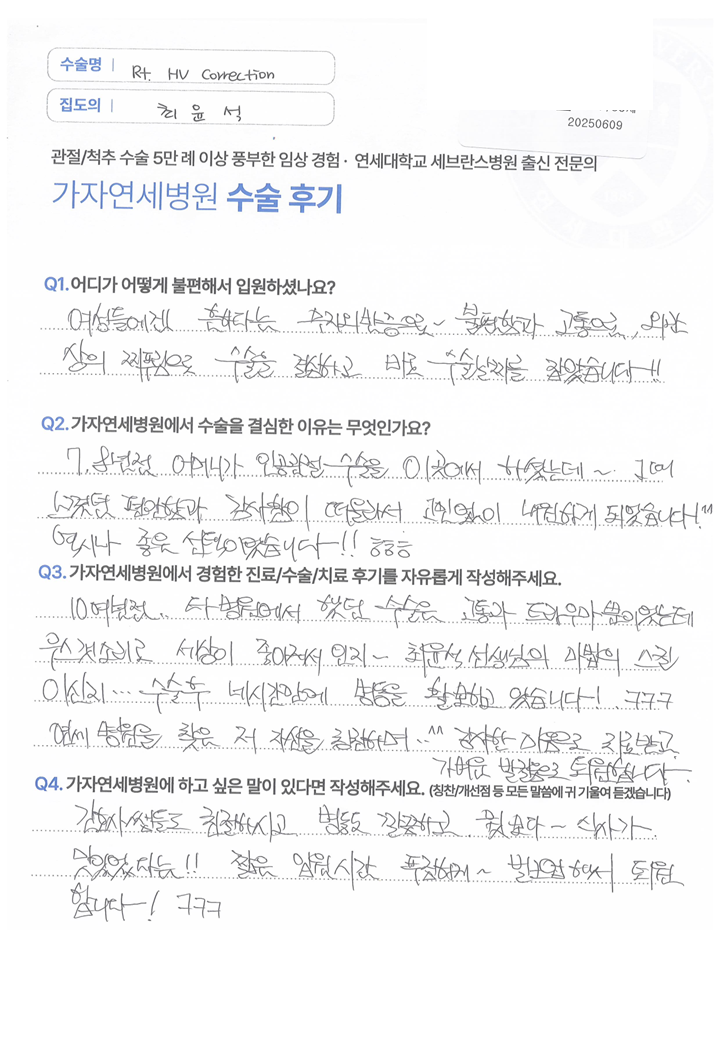 수술명 | Rt. HV Correction
집도의 | 최 윤 석
20250609
관절/척추 수술 5만 례 이상 풍부한 임상 경험 · 연세대학교 세브란스병원 출신 전문의
가자연세병원 수술 후기
Q1.어디가 어떻게 불편해서 입원하셨나요?
여성들에겐 흔하다는 무지외반증으로~ 불편함과 고통으로, 외관
상의 찌푸림으로 수술을 결심하고 바로 수술날짜를 잡았습니다!!
Q2.가자연세병원에서 수술을 결심한 이유는 무엇인가요?
7.8년전 어머니가 인공관절 수술을 이곳에서 하셨는데~ 그때
느꼈던 편안함과 감사함이 떠올라서 고민없이 내원하게 되었습니다!^^
역시나 좋은 선택이였습니다!! ㅎㅎㅎ
Q3.가자연세병원에서 경험한 진료/수술/치료 후기를 자유롭게 작성해주세요.
10여년전.. 타 병원에서 했던 수술은 고통과 트라우마 뿐이였는데
우스겟소리로 세상이 좋아져서 인지~ 최윤석 선생님의 마법의 스킬
이신지... 수술후 네시간만에 병동을 활보하고 있습니다! ㅋㅋㅋ
연세 병원을 찾은 저 자신을 칭찬하며..^^ 감사한 마음으로 치료받고
가벼운 발걸음으로 퇴원합니다.
Q4.가자연세병원에 하고 싶은 말이 있다면 작성해주세요. (칭찬/개선점 등 모든 말씀에 귀 기울여 듣겠습니다)
간호사쌤들도 친절하시고 병동도 깔끔하고 무엇보다~ 식사가
맛있었다는!! 짧은 입원시간 푹쉼하게~ 벌크업해서 퇴원
합니다! ㅋㅋㅋ